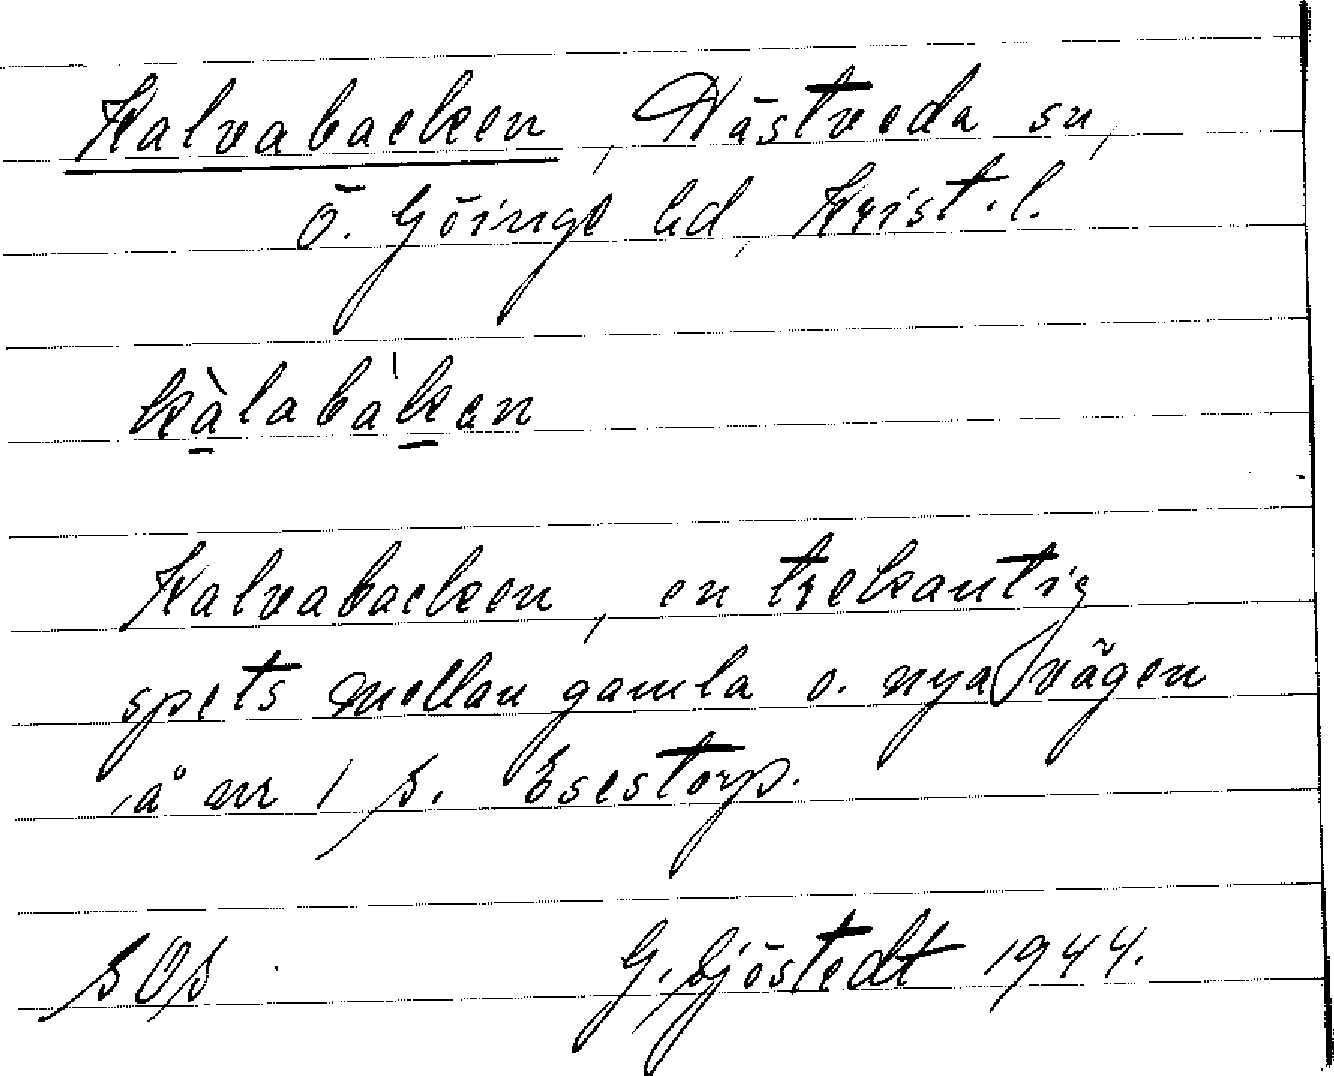 Kalvabacken, Nästveda sn,
Ö. Göinge hd, Krist. l.
kàlabàkan
Kalvabacken, en trekantig
spets mellan gamla o. nya vägen
å nr 1 S. Esestorp.
SOS G. Sjöstedt 1944.